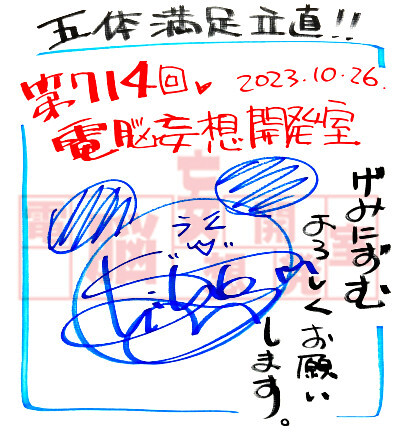 五体満足立直!!
第714回
2023.10.26.
電脳妄想開発室
げみにずむ
よろしくお願い
します。
電脳妄想開発室